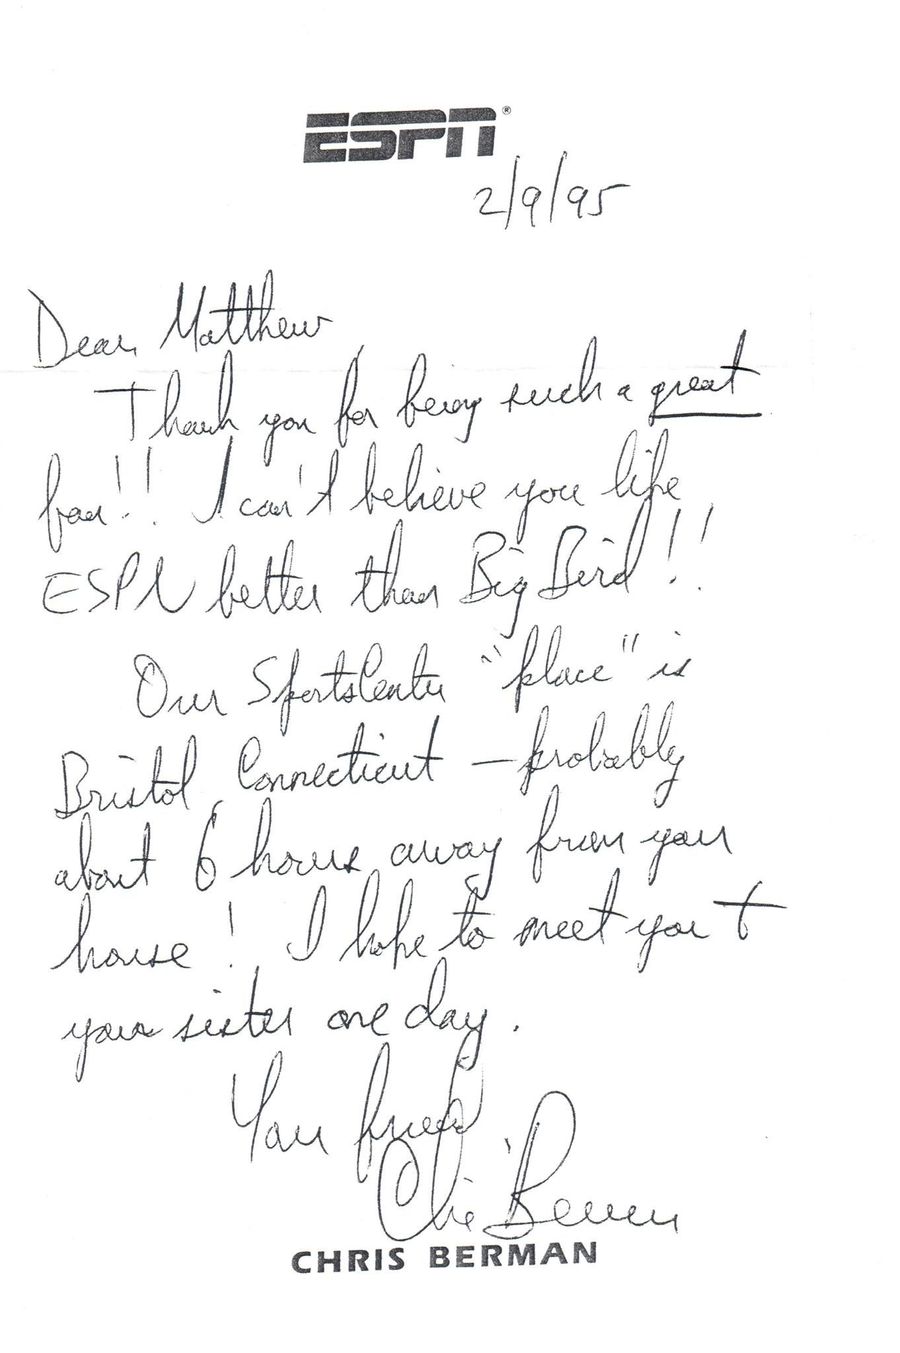 ESPN®
2/9/95
Dear Matthew,
Thank you for being such a great
fan!! I can't believe you like
ESPN better than Big Bird!!
Our SportsCenter "place" is
Bristol, Connecticut – probably
about 6 hours away from your
house! I hope to meet you +
your sister one day.
Your friend
Chris Berman
CHRIS BERMAN